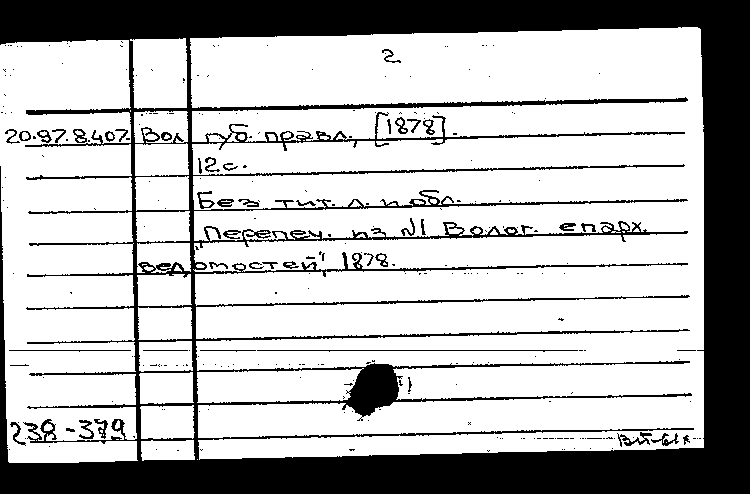 2
20.87.8.407. Вол губ. правл., [1878].
12 с.
Без тит. л. и обл.
„Перепеч. из №1 Волог. епарх.
ведомостей", 1878.
238-379